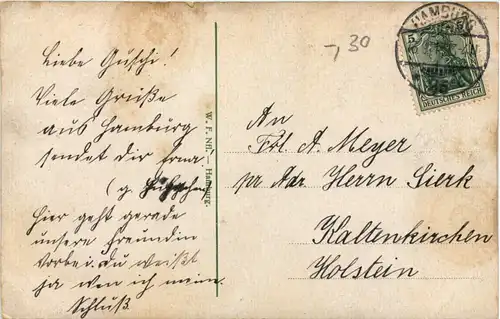 Liebe Guschi!
Viele Grüße
aus Hamburg
sendet dir Erna
(g.
Hier geht gerade
unsere Freundin
vorbei. du weißt
ja wen ich meine.
Schluß
W. F. NfL. — Hamburg.
-,30
HAMBURG
5 5
DEUTSCHES REICH
An
Frl. A. Meyer
pr Adr Herrn Sierk
Kaltenkirchen
Holstein